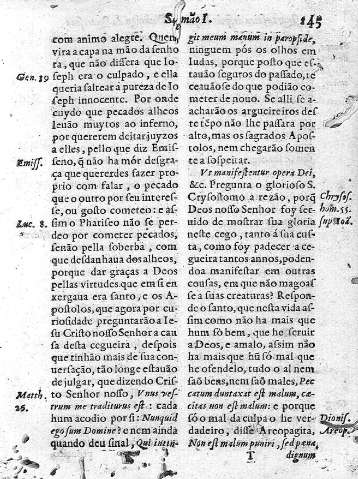 Sermão I. 145
com animo alegre. Quem
vira a capa na mão da senho
ra, que não dissera que Io
seph era o culpado, e ella
queria saltear a pureza de Io
seph innocente. Por onde
cuydo que pecados alheos
leuão muytos ao inferno,
por quererem deitar juyzos
a elles, pello que diz Emis-
seno, q̃ não ha mór desgra
ça que quererdes fazer pro
prio com falar, o pecado
que o outro por seu interes-
se, ou gosto cometeo: e as-
sim o Phariseo não se per-
deo por cometer pecados,
senão pella soberba, com
que desdanhaua dos alheos,
porque dar graças a Deos
pellas virtudes que em si en
xergaua era santo, e os A-
postolos, que agora por cu-
riosidade preguntarão a Ie-
su Cristo nosso Senhor a cau
sa desta cegueira, despois
que tinhão mais de sua con-
uersação, tão longe estauão
de julgar, que dizendo Cris-
to Senhor nosso, Vnus ves-
trum me traditurus est: cada
hum acodio por si: Nunquid
ego sum Domine? e nem ainda
quando deu sinal, Qui intin-
Gen. 39
Emiss.
Luc. 8.
Matth.
26.
git mecum manum in paropside,
ninguem pós os olhos em
Iudas, porque posto que es-
tauão seguros do passado, te
ceauão se do que podião co-
meter de nouo. Se alli se a-
chárão os argueireiros des
te tẽpo não lhe passára por
alto, mas os sagrados Apos-
tolos, nem chegarão somen
te a sospeitar.
Vt manifestentur opera Dei,
&c. Pregunta o glorioso S.
Crysostomo a rezão, porq̃
Deos nosso Senhor foy ser-
uido de mostrar sua gloria
neste cego, tanto á sua cus-
ta, como foy padecer a ce-
gueira tantos annos, poden-
doa manifestar em outras
cousas, em que não magoas-
se a suas creaturas? Respon-
de o santo, que nesta vida as-
sim como não ha mais que
hum só bem, que he seruir
a Deos, e amalo, assim não
ha mais que hũ só mal que
he ofendelo, tudo o al nem
saõ bẽs, nem saõ males, Pec
catum duntaxat est malum, cæ-
citas non est malum: e porque
só o mal da culpa o he ver-
dadeiro, disse Areopagita,
Non est malum puniri, sed pœna
Chrysos.
hom. 55.
Dionis.
Areop.
T dignum